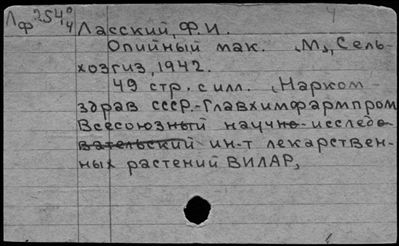 Лф 254⁰/4 Ласский, Ф.И.
Опийный мак. М., Сель-
хозгиз, 1942.
49 стр. с илл. (Нарком-
здрав СССР.-Главхимфармпром
Всесоюзный научно-исследо-
вательский ин-т лекарствен-
ных растений ВИЛАР)